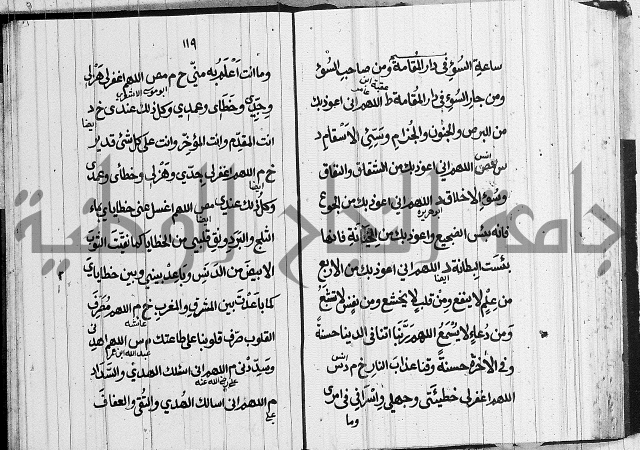 ساعة السوء في دار المقامة ومن صاحب السوء
عقبة ابن عامر
ومن جار السوء في دار المقامة ط اللهم اني اعوذ بك
من البرص والجنون والجذام وسيئ الاسقام د
انس
س مص اللهم اني اعوذ بك من الشقاق والنفاق
وسوء الاخلاق د اللهم اني اعوذ بك من الجوع
ابو هريرة
فانه بئس الضجيع واعوذ بك من الخيانة فانها
بئست البطانة د اللهم اني اعوذ بك من الاربع
ايضا
من علم لا ينفع ومن قلب لا يخشع ومن نفس لا تشبع
ومن دعاء لا يسمع اللهم ربنا اتنا في الدنيا حسنة
وفي الاخرة حسنة وقنا عذاب النار خ م د س
انس
اللهم اغفر لي خطيئتي وجهلي واسرافي في امري
وما
١١٩
وما انت اعلم به مني خ م مص اللهم اغفر لي هزلي
ابو موسى الاشعري
وجدي وخطاي وعمدي وكل ذلك عندي خ د
ايضا
انت المقدم وانت المؤخر وانت على كل شئ قدير
خ م اللهم اغفر لي جدي وهزلي وخطاي وعمدي
ايضا
وكل ذلك عندي مص اللهم اغسل عني خطاياي بماء
ايضا
الثلج والبرد ونق قلبي من الخطايا كما نقيت الثوب
الابيض من الدنس وباعد بيني وبين خطاياي
كما باعدت بين المشرق والمغرب خ م اللهم مصرف
عائشه
القلوب صرف قلوبنا على طاعتك م س اللهم اهدني
عبد الله ابن عمر
وسددني م اللهم اني اسئلك الهدي والسداد
علي رضي الله عنه
م اللهم اني اسالك الهدي والتقى والعفاف